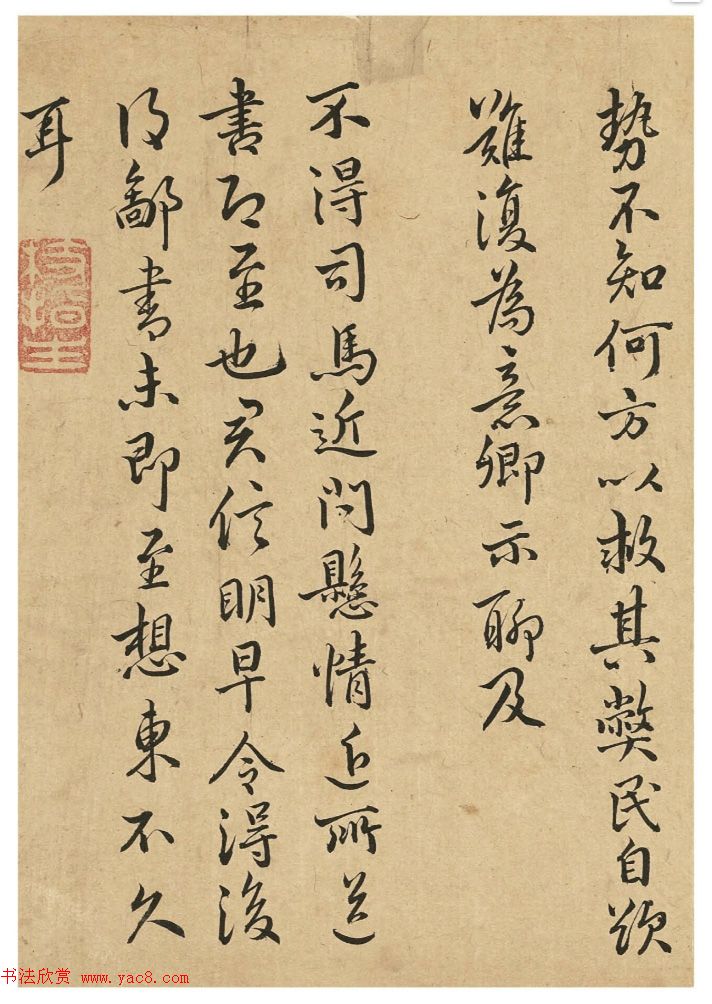 勢不知何方以救其弊民自
難復為意卿示聊及
不得司馬近問懸情近所送
書即至也君信明早令得後
得書未即至想東不久
耳
书法欣赏 www.yac8.com